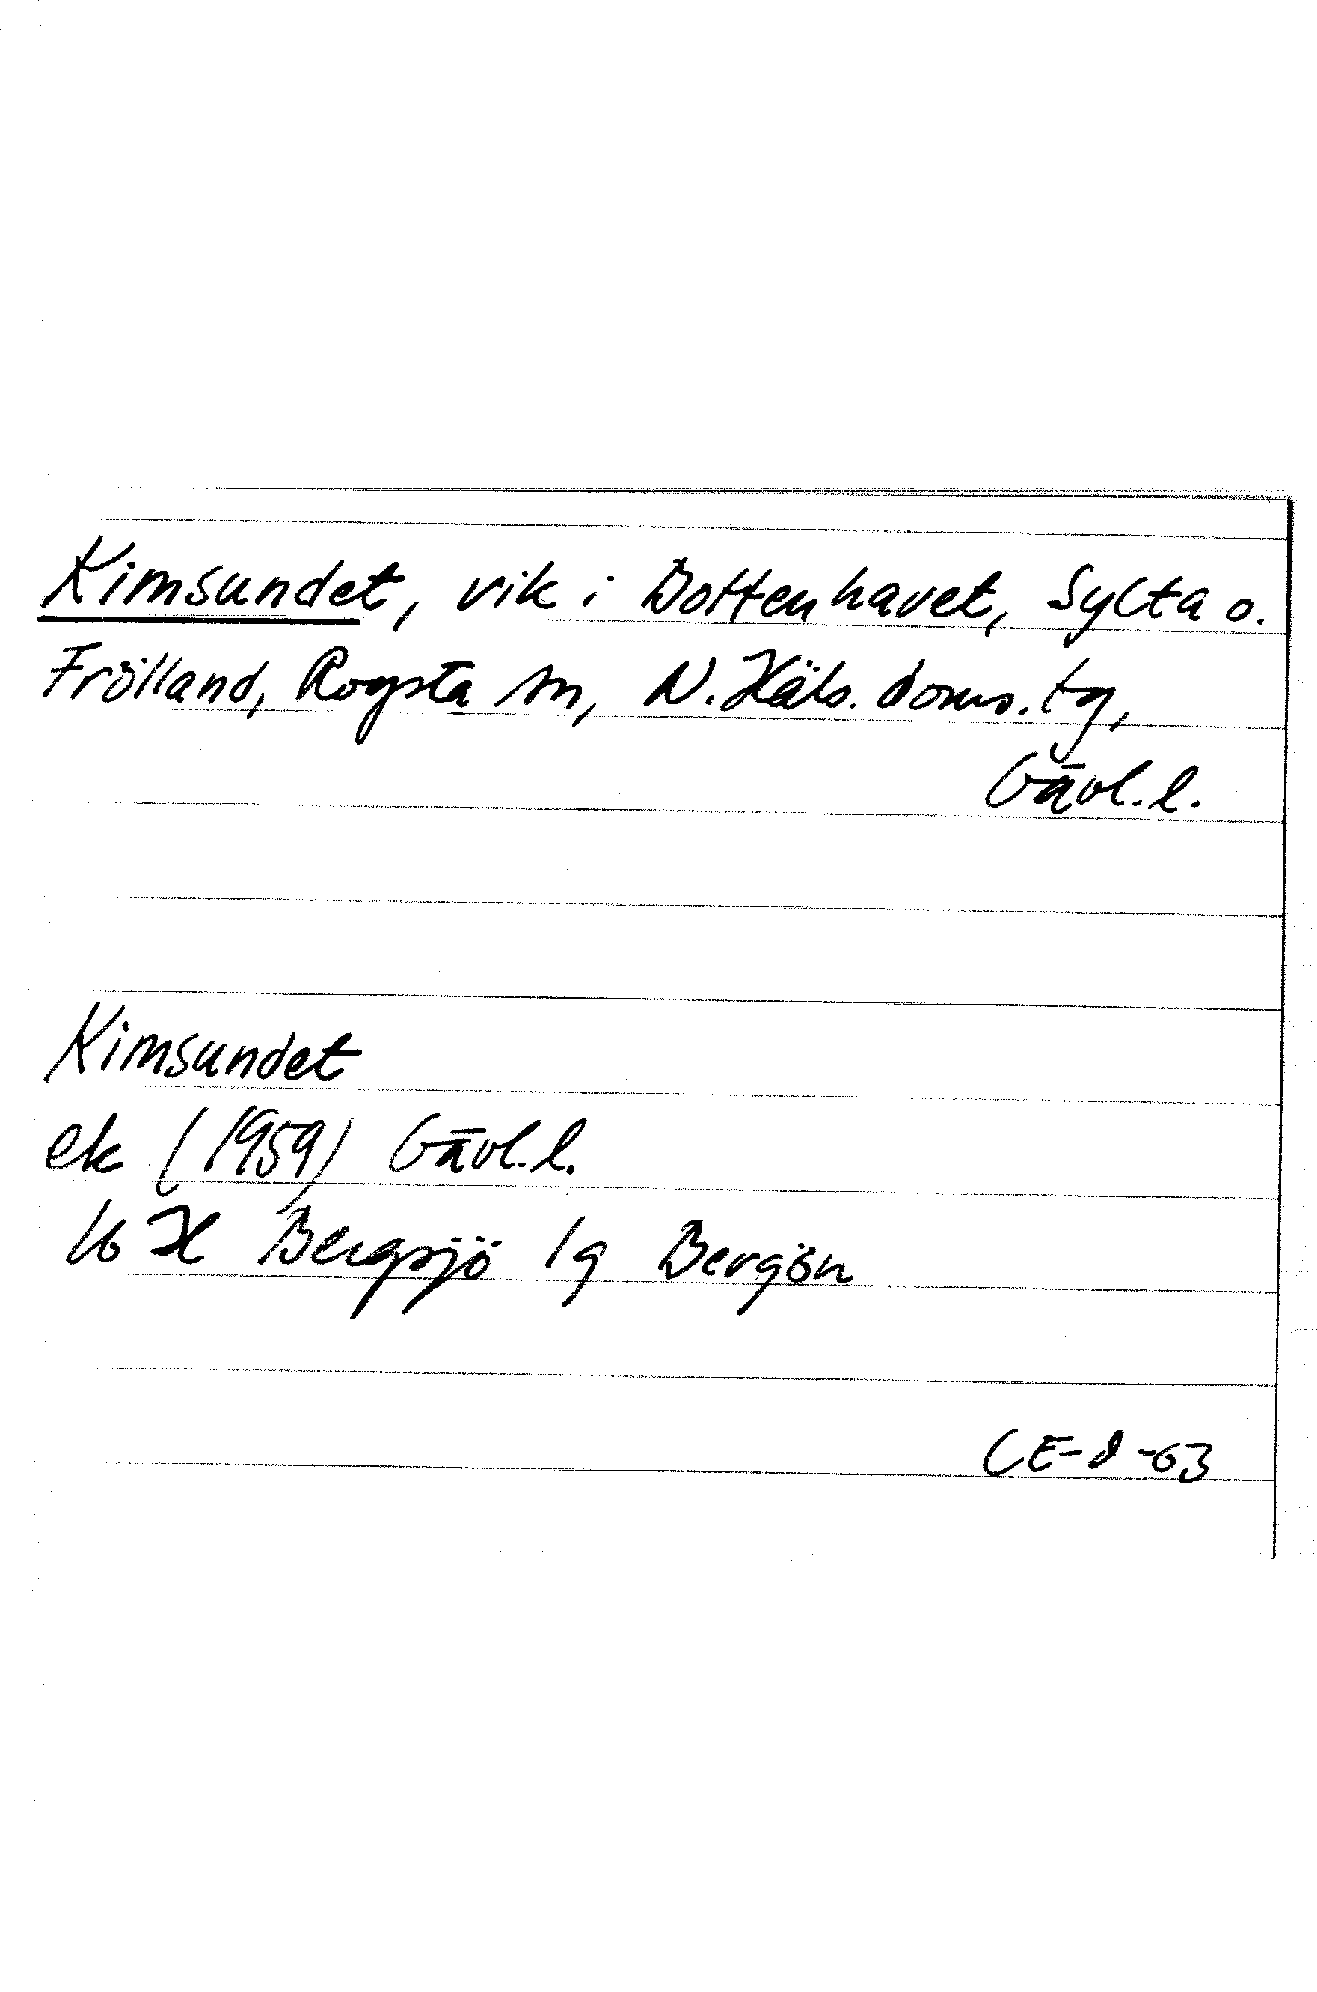 Kimsundet, vik i Bottenhavet, Sylta o.
Frölland, Rogsta sn, N. Häls. doms. tg,
Gävl. l.
Kimsundet
ek (1959) Gävl. l.
16 H Bergsjö 1g Bergön
CE-8-63